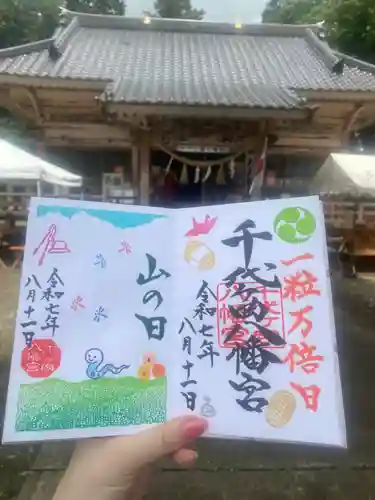 一粒万倍日
千代田八幡宮
令和七年
八月十一日
山の日
令和七年
八月十一日